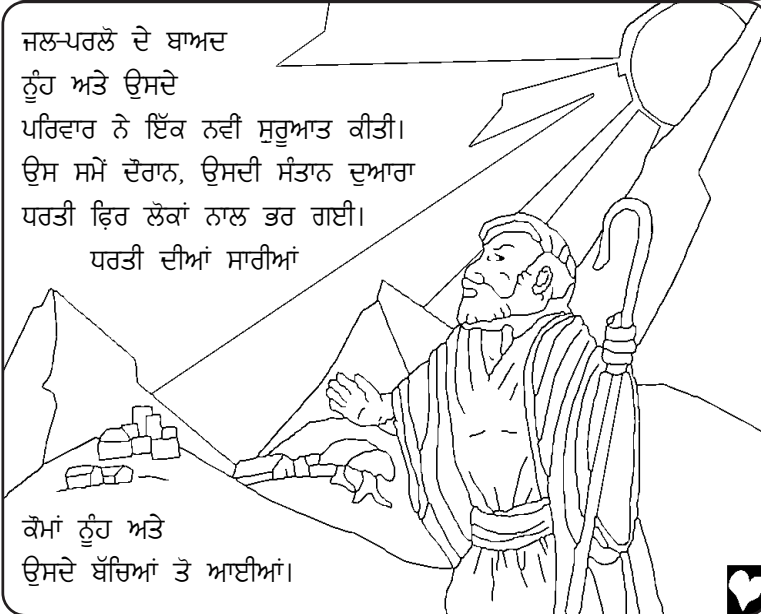 ਜਲ-ਪਰਲੋ ਦੇ ਬਾਅਦ
ਨੂੰਹ ਅਤੇ ਉਸਦੇ
ਪਰਿਵਾਰ ਨੇ ਇੱਕ ਨਵੀਂ ਸੁਰੂਆਤ ਕੀਤੀ।
ਉਸ ਸਮੇਂ ਦੌਰਾਨ, ਉਸਦੀ ਸੰਤਾਨ ਦੁਆਰਾ
ਧਰਤੀ ਫ਼ਿਰ ਲੋਕਾਂ ਨਾਲ ਭਰ ਗਈ।
ਧਰਤੀ ਦੀਆਂ ਸਾਰੀਆਂ
ਕੌਮਾਂ ਨੂੰਹ ਅਤੇ
ਉਸਦੇ ਬੱਚਿਆਂ ਤੋ ਆਈਆਂ।